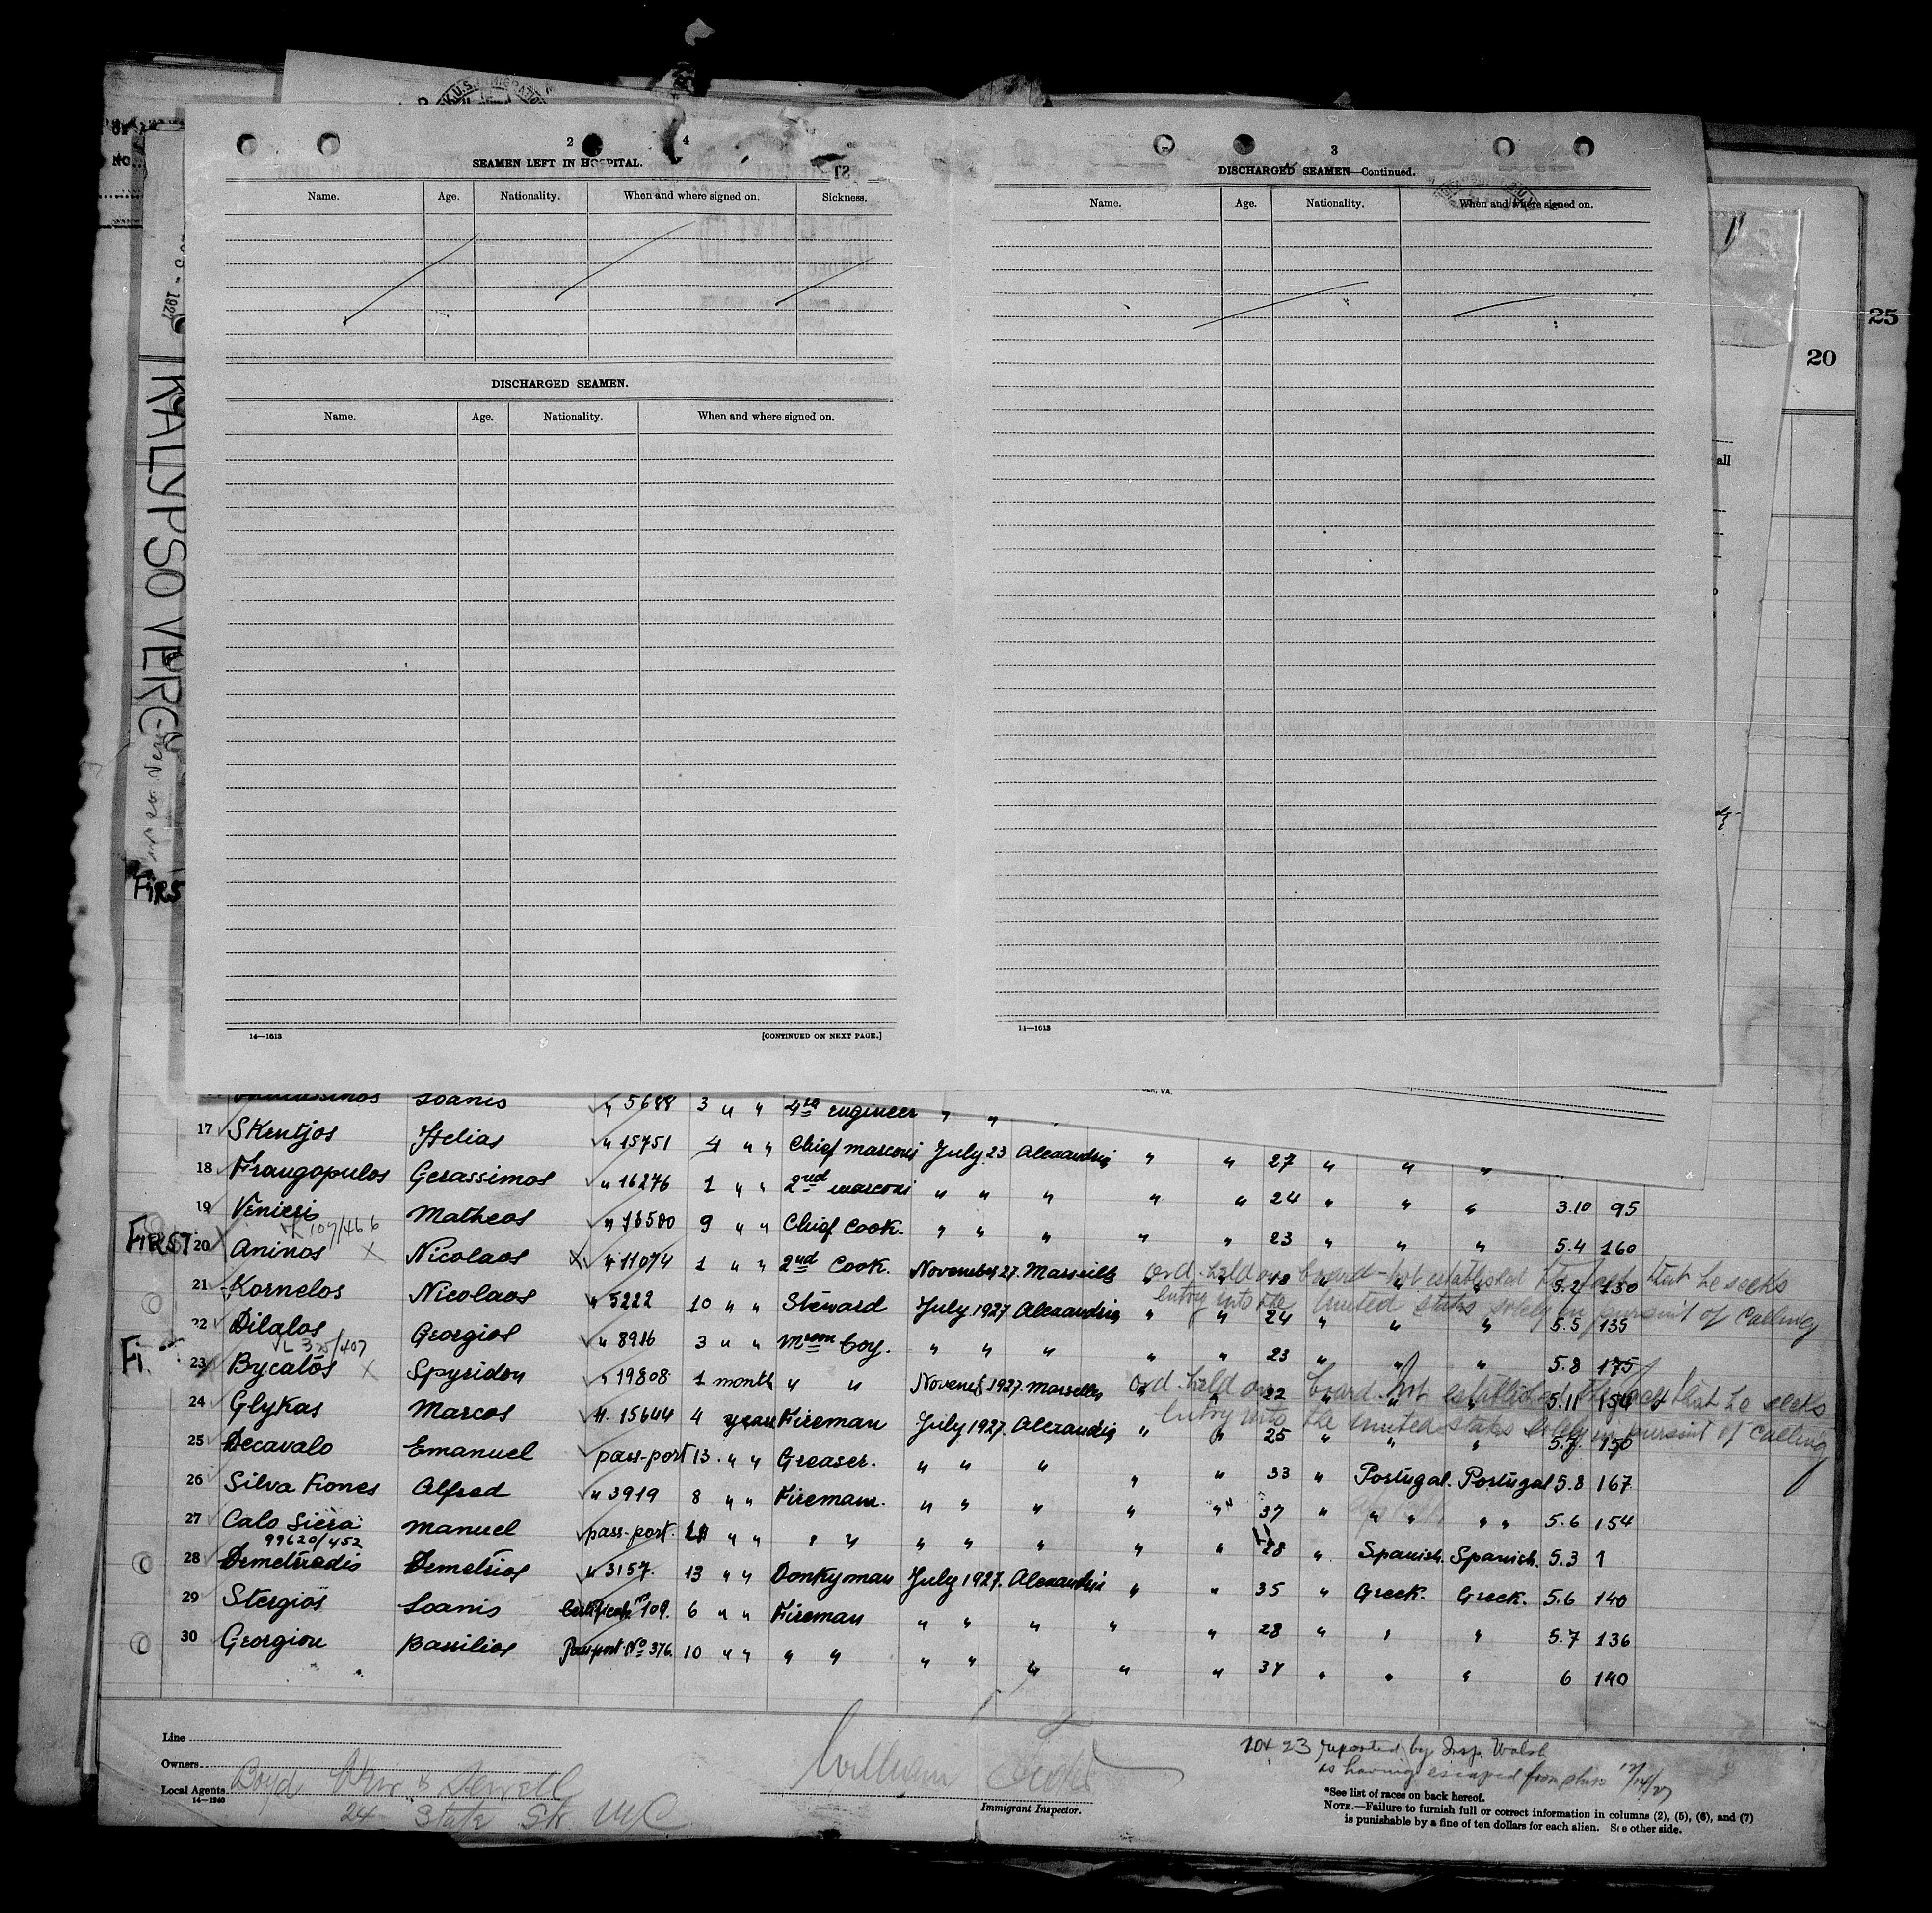 2 4
SEAMEN LEFT IN HOSPITAL.
Name. Age. Nationality. When and where signed on. Sickness.
DISCHARGED SEAMEN.
Name. Age. Nationality. When and where signed on.
14—1613 [CONTINUED ON NEXT PAGE.]
3
DISCHARGED SEAMEN—Continued.
Name. Age. Nationality. When and where signed on.
14—1613
25
20
all
1927
KALYPSO VERG
FIRS
Ioanis " 5688 3 " " 4th engineer " "
17 Skentjos Helias " 15751 4 " " Chief marconi July 23 Alexandria " " 27 " " "
18 Frangopulos Gerassimos " 16276 1 " " 2nd marconi " " " " " 24 " " " 3.10 95
19 Venieri Matheos " 13500 9 " " Chief Cook. " " " " " 23 " " " 5.4 160
107/466
FIRST 20 Aninos X Nicolaos X " 11074 1 " " 2nd Cook. November 27. Marseills " " 18 " " " 5.2 130
ord. held on board - not established the fact that he seeks
entry into the United states solely in pursuit of calling
21 Kornelos Nicolaos " 5222 10 " " Steward July 1927 Alexandria " " 24 " " " 5.5 135
22 Dilalos Georgios " 8916 3 " " Mroom boy. " " " " " 23 " " " 5.8 175
L 35/407
Fi. 23 Bycalos X Spyridon " 19808 1 month " " Novemb 1927. Marselles " " 22 " " " 5.11 154
ord. held on board. not established the fact that he seeks
entry into the United states solely in pursuit of calling
24 Glykas Marcos " 15644 4 years Fireman July 1927. Alexandria " " 25 " " " 5.7 150
25 Decavalo Emanuel pass-port 13 " " Greaser. " " " " " 33 " Portugal. Portugal 5.8 167
26 Silva Fiones Alfred " 3919 8 " " Fireman. " " " " " 37 " " " " " 5.6 154
27 Calo Siera Manuel pass-port. " " " " " " " " " 28 " Spanish. Spanish. 5.3 1
99620/452
28 Demetriadis Demetrios " 3157. 13 " " Donkyman July 1927. Alexandria " " 35 " Greek. Greek. 5.6 140
29 Stergios Ioanis Certificate No 109. 6 " " Fireman " " " " " 28 " " " 5.7 136
30 Georgiou Bassilios Passport No 376. 10 " " " " " " " " " 37 " " " 6 140
Line
Owners
Local Agents Boyd Weir & Sewell
14—1240
24 State St. NYC
William
Immigrant Inspector.
20 & 23 reported by Insp. Walsh
as having escaped from ship 12/14/27
*See list of races on back hereof.
NOTE.—Failure to furnish full or correct information in columns (2), (5), (6), and (7)
is punishable by a fine of ten dollars for each alien. See other side.